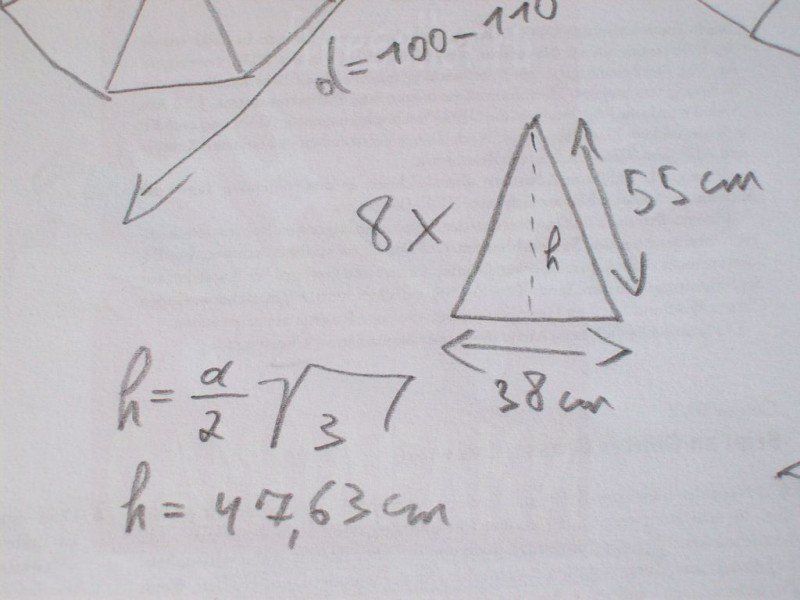 d=100-110
8 x
55 cm
h
38 cm
h = a/2 √3
h = 47,63 cm